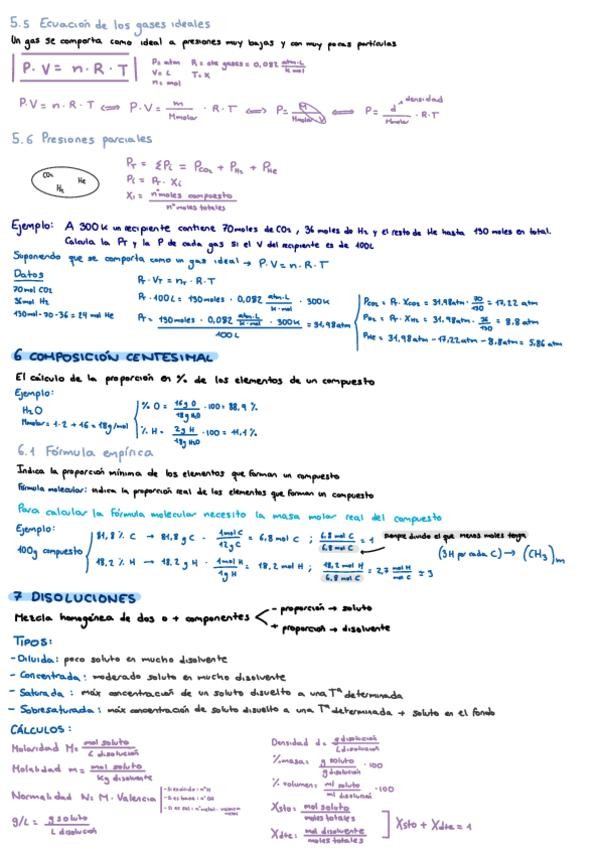 5.5 Ecuación de los gases ideales
Un gas se comporta como ideal a presiones muy bajas y con muy pocas partículas
P·V = n·R·T
P= atm R= cte gases = 0,082 atm·L / K·mol
V= L T= K
n= mol
P·V = n·R·T ⟺ P·V = m / Mmolar · R·T ⟺ P= ⟺ P= d → densidad / Mmolar · R·T
5.6 Presiones parciales
CO2 He H2
PT = ΣPi = PCO2 + PH2 + PHe
Pi = PT · Xi
Xi = nºmoles compuesto / nºmoles totales
Ejemplo: A 300K un recipiente contiene 70moles de CO2, 36 moles de H2 y el resto de He hasta 130 moles en total.
Calcula la PT y la P de cada gas si el V del recipiente es de 100L
Suponiendo que se comporta como un gas ideal → P·V = n·R·T
Datos
70mol CO2
36mol H2
130mol - 70 - 36 = 24 mol He
PT · VT = nT · R·T
PT · 100L = 130moles · 0,082 atm·L / K·mol · 300K
PT = 130moles · 0,082 atm·L / K·mol · 300K / 100L = 31,98atm
PCO2 = PT · XCO2 = 31,98atm · 70 / 130 = 17,22 atm
PH2 = PT · XH2 = 31,98atm · 36 / 130 = 8.8 atm
PHe = 31,98atm - 17,22atm - 8.8atm = 5.86 atm
6 COMPOSICIÓN CENTESIMAL
El cálculo de la proporción en % de los elementos de un compuesto
Ejemplo:
H2O
Mmolar = 1·2 + 16 = 18g/mol
% O = 16g O / 18g H2O · 100 = 88,9 %
% H = 2g H / 18g H2O · 100 = 11,1 %
6.1 Fórmula empírica
Indica la proporción mínima de los elementos que forman un compuesto
Fórmula molecular: indica la proporción real de los elementos que forman un compuesto
Para calcular la Fórmula molecular necesito la masa molar real del compuesto
Ejemplo:
100g compuesto
81,8 % C → 81,8 g C · 1mol C / 12g C = 6,8 mol C ; 6,8 mol C / 6,8 mol C = 1 siempre divido el que menos moles tenga
18,2 % H → 18,2 g H · 1mol H / 1g H = 18,2 mol H ; 18,2 mol H / 6,8 mol C = 2,7 mol H / mol C ≅ 3
(3H por cada C) → (CH3)m
7 DISOLUCIONES
Mezcla homogénea de dos o + componentes
- proporción → soluto
+ proporción → disolvente
TIPOS:
- Diluida: poco soluto en mucho disolvente
- Concentrada: moderado soluto en mucho disolvente
- Saturada: máx concentración de un soluto disuelto a una Tª determinada
- Sobresaturada: máx concentración de soluto disuelto a una Tª determinada + soluto en el fondo
CÁLCULOS:
Molaridad M = mol soluto / L disolución
Molalidad m = mol soluto / Kg disolvente
Normalidad N = M · Valencia
g/L = g soluto / L disolución
Densidad d = g disolución / L disolución
% masa: g soluto / g disolución · 100
% volumen: ml soluto / ml disolución · 100
Xsto: mol soluto / moles totales
Xdte: mol disolvente / moles totales
Xsto + Xdte = 1